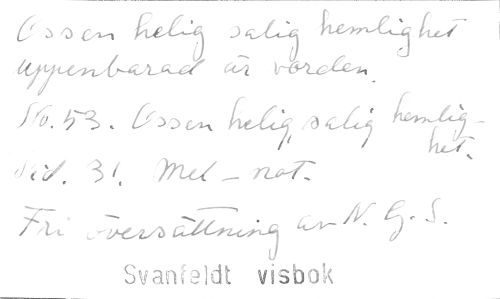 Ossen helig salig hemlighet
uppenbarad är vorden.
No. 53. Ossen helig, salig hemlig-
het.
Sid. 31. Mel-not.
Fri översättning av N. G. S.
Svanfeldt visbok